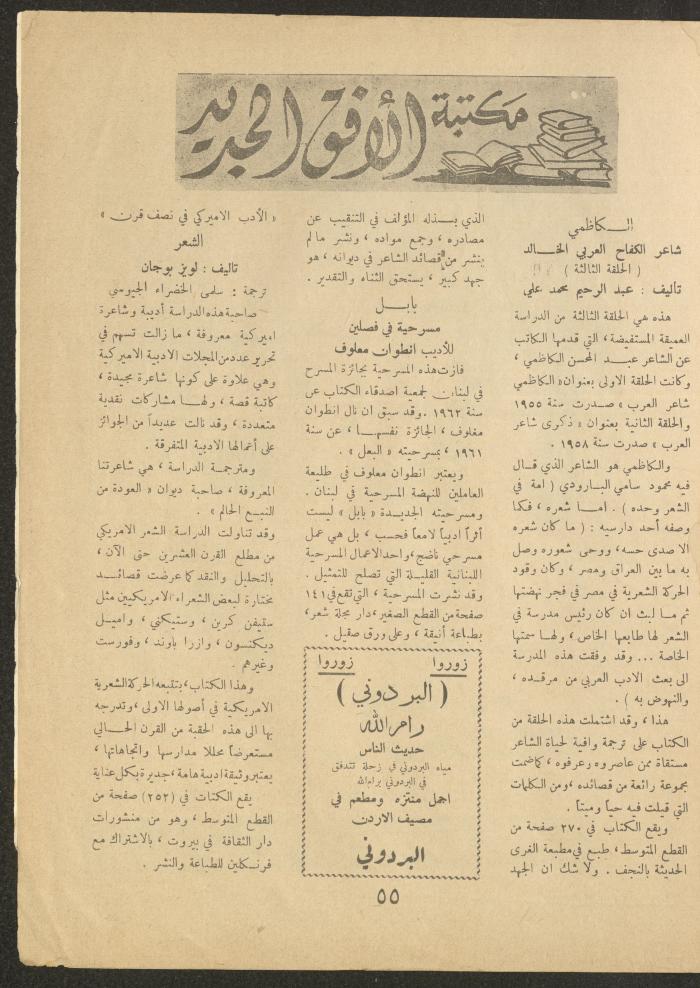 مكتبة الأفق الجديد
الكاظمي
شاعر الكفاح العربي الخالد
( الحلقة الثالثة )
تأليف : عبد الرحيم محمد علي
هذه هي الحلقة الثالثة من الدراسة
العميقة المستفيضة ، التي قدمها الكاتب
عن الشاعر عبد المحسن الكاظمي ،
وكانت الحلقة الاولى بعنوان « الكاظمي
شاعر العرب » صدرت سنة ١٩٥٥
والحلقة الثانية بعنوان « ذكرى شاعر
العرب » صدرت سنة ١٩٥٨ .
والكاظمي هو الشاعر الذي قال
فيه محمود سامي البارودي ( امة في
الشعر وحده ) . اما شعره ، فكما
وصفه أحد دارسيه : ( ما كان شعره
الا صدى حسه ، ووحى شعوره وصل
به ما بين العراق ومصر ، وكان وقود
الحركة الشعرية في مصر في فجر نهضتها
ثم ما لبث ان كان رئيس مدرسة في
الشعر لها طابعها الخاص ، ولها سمتها
الخاصة ... وقد وفقت هذه المدرسة
الى بعث الادب العربي من مرقده ،
والنهوض به ) .
هذا ، وقد اشتملت هذه الحلقة من
الكتاب على ترجمة وافية لحياة الشاعر
مستقاة ممن عاصروه وعرفوه ، كما ضمت
مجموعة رائعة من قصائده ، ومن الكلمات
التي قيلت فيه حياً وميتاً .
ويقع الكتاب في ٢٧٠ صفحة من
القطع المتوسط ، طبع في مطبعة الغرى
الحديثة بالنجف . ولا شك ان الجهد
الذي بسذله المؤلف في التنقيب عن
مصادره ، وجمع مواده ، ونشر ما لم
ينشر من قصائد الشاعر في ديوانه ، هو
جهد كبير ، يستحق الثناء والتقدير .
بابل
مسرحية في فصلين
للأديب انطوان معلوف
فازت هذه المسرحية بجائزة المسرح
في لبنان لجمعية اصدقاء الكتاب عن
سنة ١٩٦٢ . وقد سبق ان نال انطوان
معلوف ، الجائزة نفسها ، عن سنة
١٩٦١ ، بمسرحيته « البعل » .
ويعتبر انطوان معلوف في طليعة
العاملين للنهضة المسرحية في لبنان .
ومسرحيته الجديدة « بابل » ليست
أثراً ادبياً لامعاً فحسب ، بل هي عمل
مسرحي ناضج ، واحد الاعمال المسرحية
اللبنانية القليلة التي تصلح للتمثيل .
وقد نشرت المسرحية ، التي تقع في ١٤١
صفحة من القطع الصغير ، دار مجلة شعر ،
بطباعة أنيقة ، وعلى ورق صقيل .
زوروا زوروا
( البردوني )
رام الله
حديث الناس
مياه البردوني في زحلة تتدفق
في البردوني برام الله
اجمل منتزه ومطعم في
مصيف الاردن
البردوني
« الأدب الاميركي في نصف قرن »
الشعر
تاليف : لويز بوجان
ترجمة : سلمى الخضراء الجيوسي
صاحبة هذه الدراسة أديبة وشاعرة
اميركية معروفة ، ما زالت تسهم في
تحرير عدد من المجلات الادبية الاميركية
وهي علاوة على كونها شاعرة مجيدة ،
كاتبة قصة ، ولها مشاركات نقدية
متعددة ، وقد نالت عديداً من الجوائز
على أعمالها الادبية المتفرقة .
ومترجمة الدراسة ، هي شاعرتنا
المعروفة ، صاحبة ديوان « العودة من
النبع الحالم » .
وقد تناولت الدراسة الشعر الامريكي
من مطلع القرن العشرين حتى الآن ،
بالتحليل والنقد كما عرضت قصائد
مختارة لبعض الشعراء الامريكيين مثل
ستيفن كرين ، وستيكني ، واميل
ديكنسون ، وازرا باوند ، وفورست
وغيرهم .
وهذا الكتاب ، بتتبعه الحركة الشعرية
الامريكية في أصولها الاولى ، وتدرجه
بها الى هذه الحقبة من القرن الحالي
مستعرضاً محللا مدارسها واتجاهاتها ،
يعتبر وثيقة ادبية هامة ، جديرة بكل عناية
يقع الكتات في (٢٥٢) صفحة من
القطع المتوسط ، وهو من منشورات
دار الثقافة في بيروت ، بالاشتراك مع
فرنكلين للطباعة والنشر .
٥٥